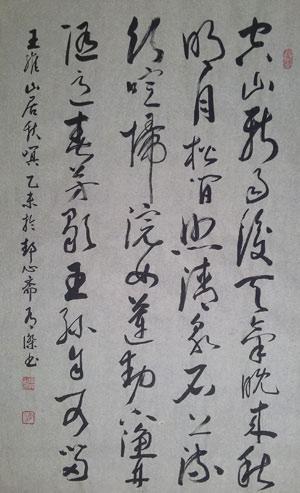 空山新雨後天氣晚來秋
明月松間照清泉石上流
竹喧歸浣女蓮動下漁舟
隨意春芳歇王孫自可留
王維山居秋暝乙未於心斋书